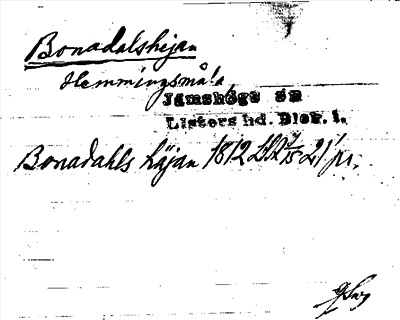 Bonadalshejan
Hemmingsmåla
Jämshögs sn
Listers hd. Blek. l.
Bonadahls häjan 1812 21/